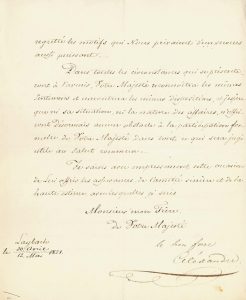 regretté les motifs qui Nous privaient d'un secours
aussi puissant. ..
Dans toutes les circonstances qui se présente-
ront à l'avenir, Votre Majesté reconnoîtra les mêmes
sentimens et rencontrera les mêmes dispositions, et j'espère
que ni sa situation, ni la nature des affaires, n'offri-
ront désormais aucun obstacle à la participation for-
melle de Votre Majesté dans tout ce qui sera jugé
utile au salut commun. ..
Je saisis avec empressement cette occasion
de Lui offrir les assurances de l'amitié sincère et de la
haute estime avec lesquelles je suis
Monsieur mon Frère,
de Votre Majesté
le bon frère
Alexandre
Laybach
le 30 Avril
12 Mai 1821.